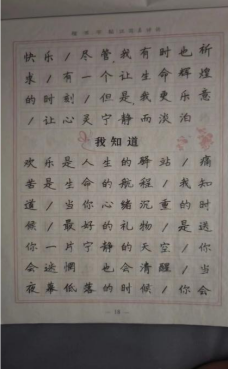 快乐/尽管我有时也祈
求/有一个让生命辉煌
的时刻/但是我更乐意
/让心灵宁静而淡泊
我知道
欢乐是人生的驿站/痛
苦是生命的航程/我知
道/当你心绪沉重的时
候/最好的礼物/是送
你一片宁静的天空/你
会迷惘 也会清醒/当
夜幕低落的时候/你会